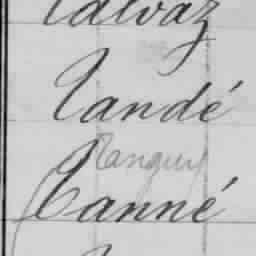 Calvaz
Tandé
Tanguy
Tanné